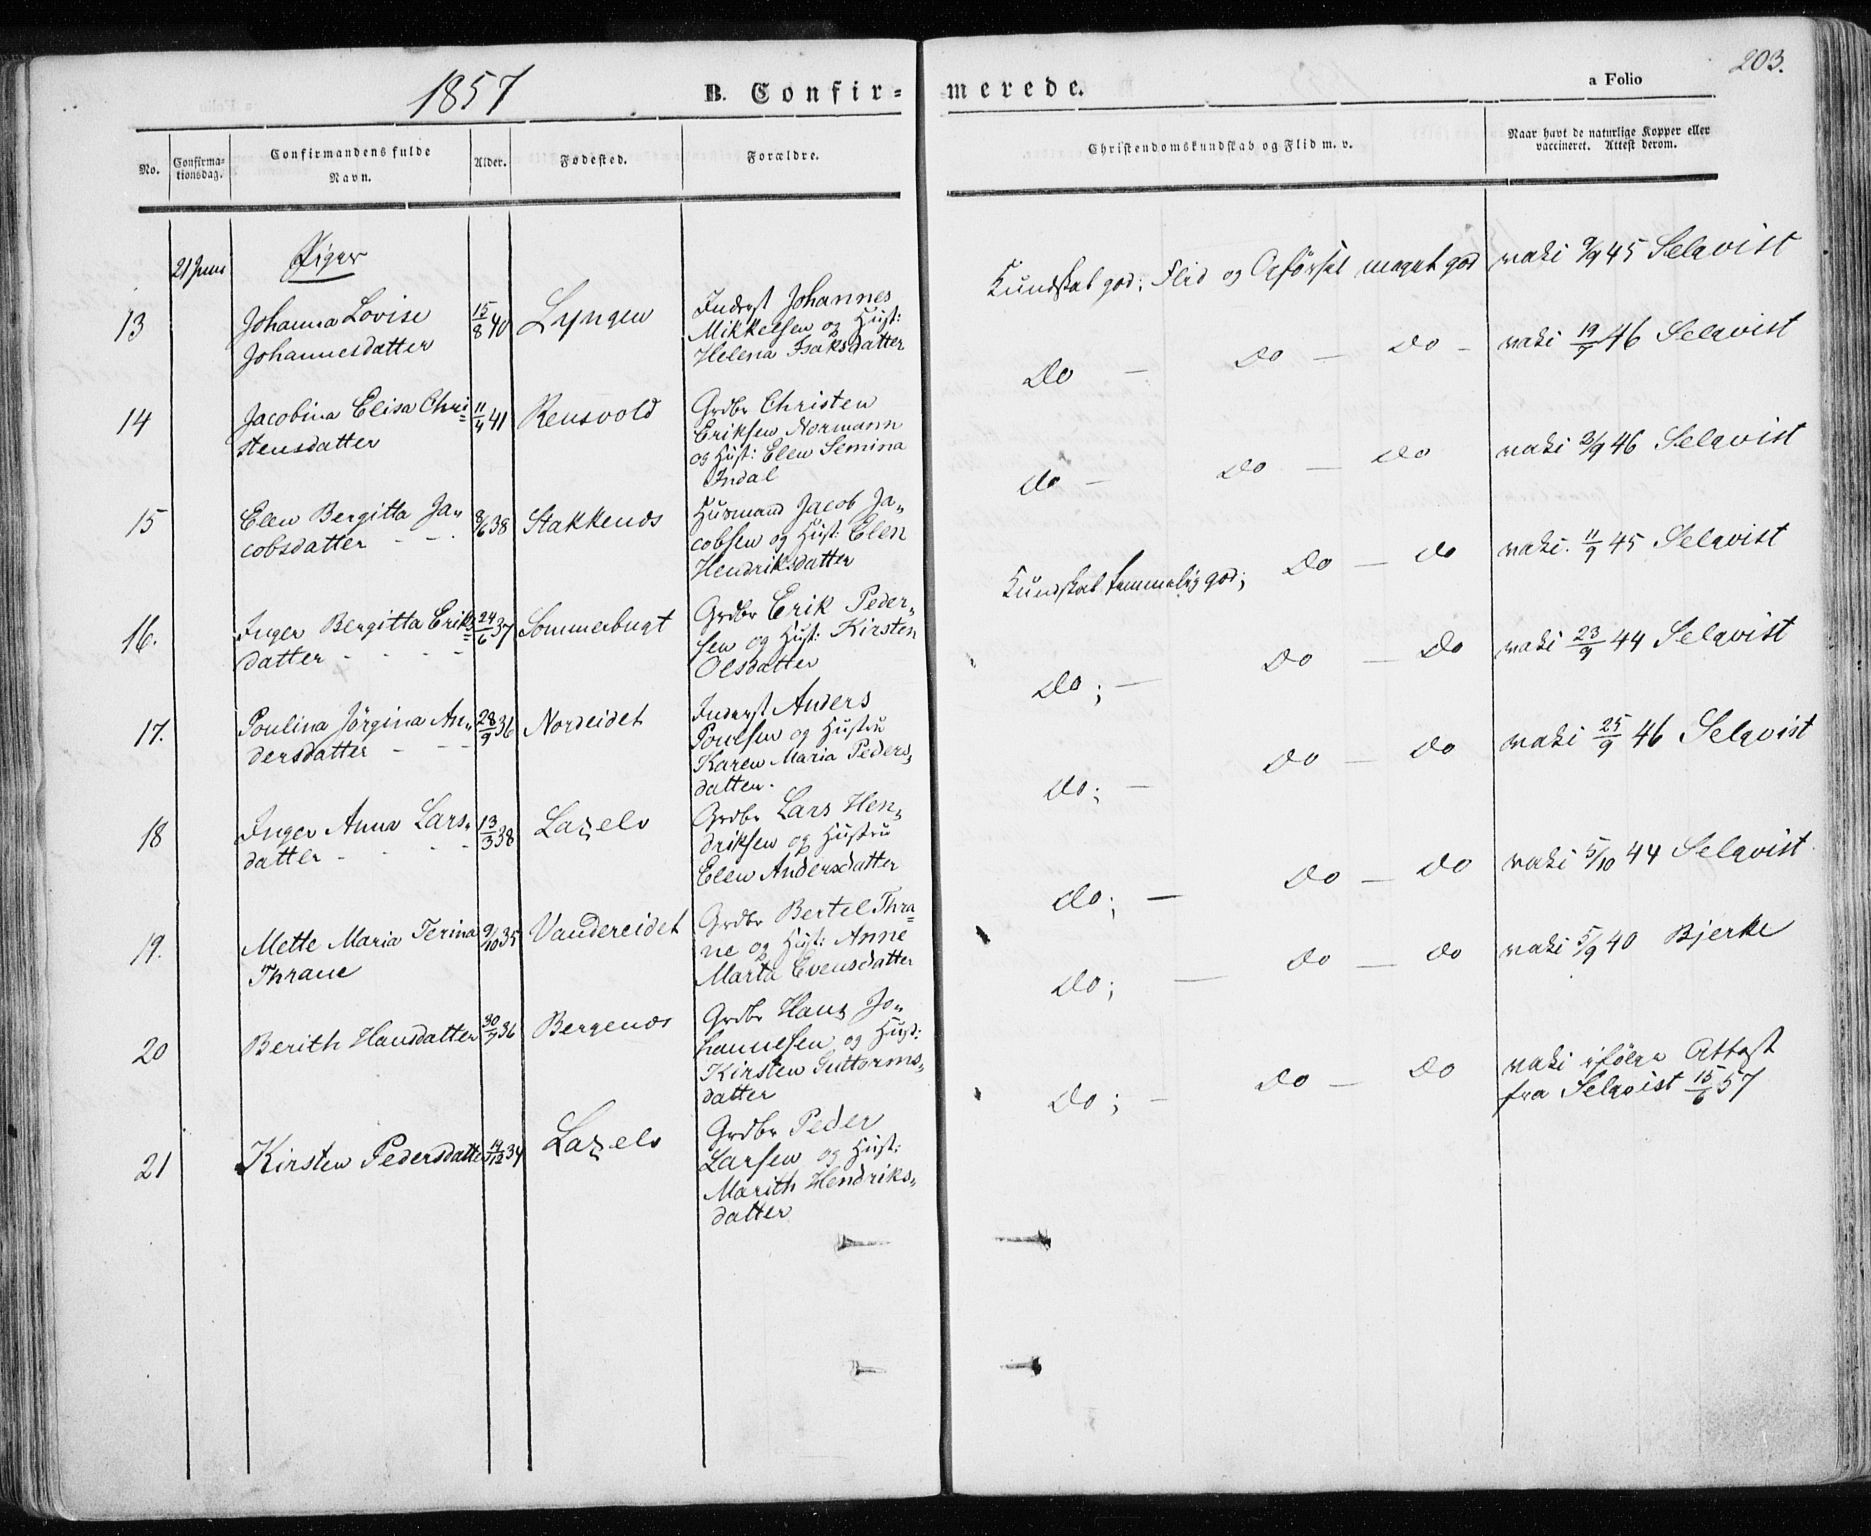 203.
1857
B. Confir-
merede.
a Folio
No.
Confirma-
tionsdag.
Confirmandens fulde
Navn.
Alder.
Fødested.
Forældre.
Christendomskundskab og Flid m. v.
Naar havt de naturlige Kopper eller
vaccineret. Attest derom.
21 Juni
Piger
13
Johanna Lovise
Johannesdatter
15/8 40
Lyngen
Inderst Johannes
Mikkelsen og Hust:
Helena Isaksdatter
Kundskab god; Flid og Opførsel meget god
vaki 9/9 45 Selqvist
14
Jacobina Elisa Chri=
stensdatter
11/4 41
Rensvold
Grdbr Christen
Eriksen Normann
og Hust: Elen Semina
Indal
Do — Do — Do -
vaki 19/7 46 Selqvist
15
Elen Bergitta Ja„
cobsdatter - - .
8/6 38
Stakkenæs
Husmand Jacob Ja„
cobsen og Hust: Elen
Hendriksdatter
do — Do — Do
vaki 2/9 46 Selqvist
16.
Inger Bergitta Eriks=
datter - - - -
24/6 37
Sommerbugt
Grdbr Erik Peder„
sen og Hust: Kirsten
Olsdatter
Kundskab temmelig god; Do — do
vaki. 11/9 45 Selqvist
17.
Poulina Jörgina An„
dersdatter - - -
28/9 36
Nordeidet
Inderst Anders
Poulsen og Hustru
Karen Maria Peders„
datter.
Do; — Do — Do
vaki 23/9 44 Selqvist
18
Inger Anna Lars„
datter - - - -
13/3 38
Lazelv
Grdbr Lars Hen„
driksen og Hustru
Elen Andersdatter
Do; — Do — Do
vaki 25/9 46 Selqvist
19.
Mette Maria Terina
Thrane
9/10 35
Vandereidet
Grdbr Bertel Thra=
ne og Hust: Anne
Marta Evensdatter
Do; — Do — Do
vaki 5/10 44 Selqvist
20
Berith Hansdatter
30/7 36
Bergenæs
Grdbr Hans Jo„
hannesen og Hust:
Kirsten Guttorms„
datter
Do; — Do — Do
vaki 5/9 40 Bjerke
21
Kirsten Pedersdatter
14/12 34
Lazelv
Grdbr Peder
Larsen og Hust:
Marith Hendriks„
datter
Do; — Do — Do
vaki ifölge Attest
fra Selqvist 15/6 57